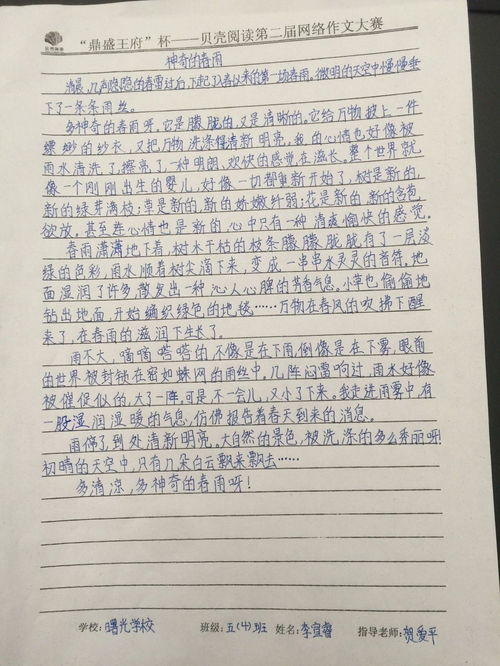 “鼎盛王府”杯——贝壳阅读第二届网络作文大赛
神奇的春雨
清晨,几声隐隐的春雷过后,下起了入春以来的第一场春雨。微明的天空中慢慢垂
下了一条条雨丝。
多神奇的春雨呀,它是朦胧的,又是清晰的。它给万物披上一件
缥缈的纱衣,又把万物洗涤得清新明亮,我的心情也好像被
雨水清洗了,擦亮了,一种明朗、欢快的感觉在滋长。整个世界就
像一个刚刚出生的婴儿,好像一切都重新开始了,树是新的,
新的绿芽满枝;草是新的,新的娇嫩纤弱;花是新的,新的含苞
欲放。甚至连心情也是新的,心中只有一种清爽愉快的感觉。
春雨潇潇地下着,树木干枯的枝条朦朦胧胧有了一层淡
绿的色彩,雨水顺着树尖滴下来,变成一串串水灵灵的音符,地
面湿润了许多,散发出一种沁人心脾的芳香气息。小草也偷偷地
钻出地面,开始编织绿色的地毯……万物在春风的吹拂下醒
来了,在春雨的滋润下生长了。
雨不大,嘀嘀嗒嗒的,不像是在下雨,倒像是在下雾,眼前
的世界被封锁在密如蛛网的雨丝中。几阵闷雷响过,雨水好像
被催促似的,大了一阵,可是,不一会儿,又小了下来。我走进雨雾中,有
一股湿润湿暖的气息,仿佛报告着春天到来的消息。
雨停了,到处清新明亮。大自然的景色,被洗涤的多么秀丽呀!
初晴的天空中,只有几朵白云飘来飘去……
多清凉,多神奇的春雨呀!
学校:曙光学校 班级:五(4)班 姓名:李宜睿 指导老师:贺爱平